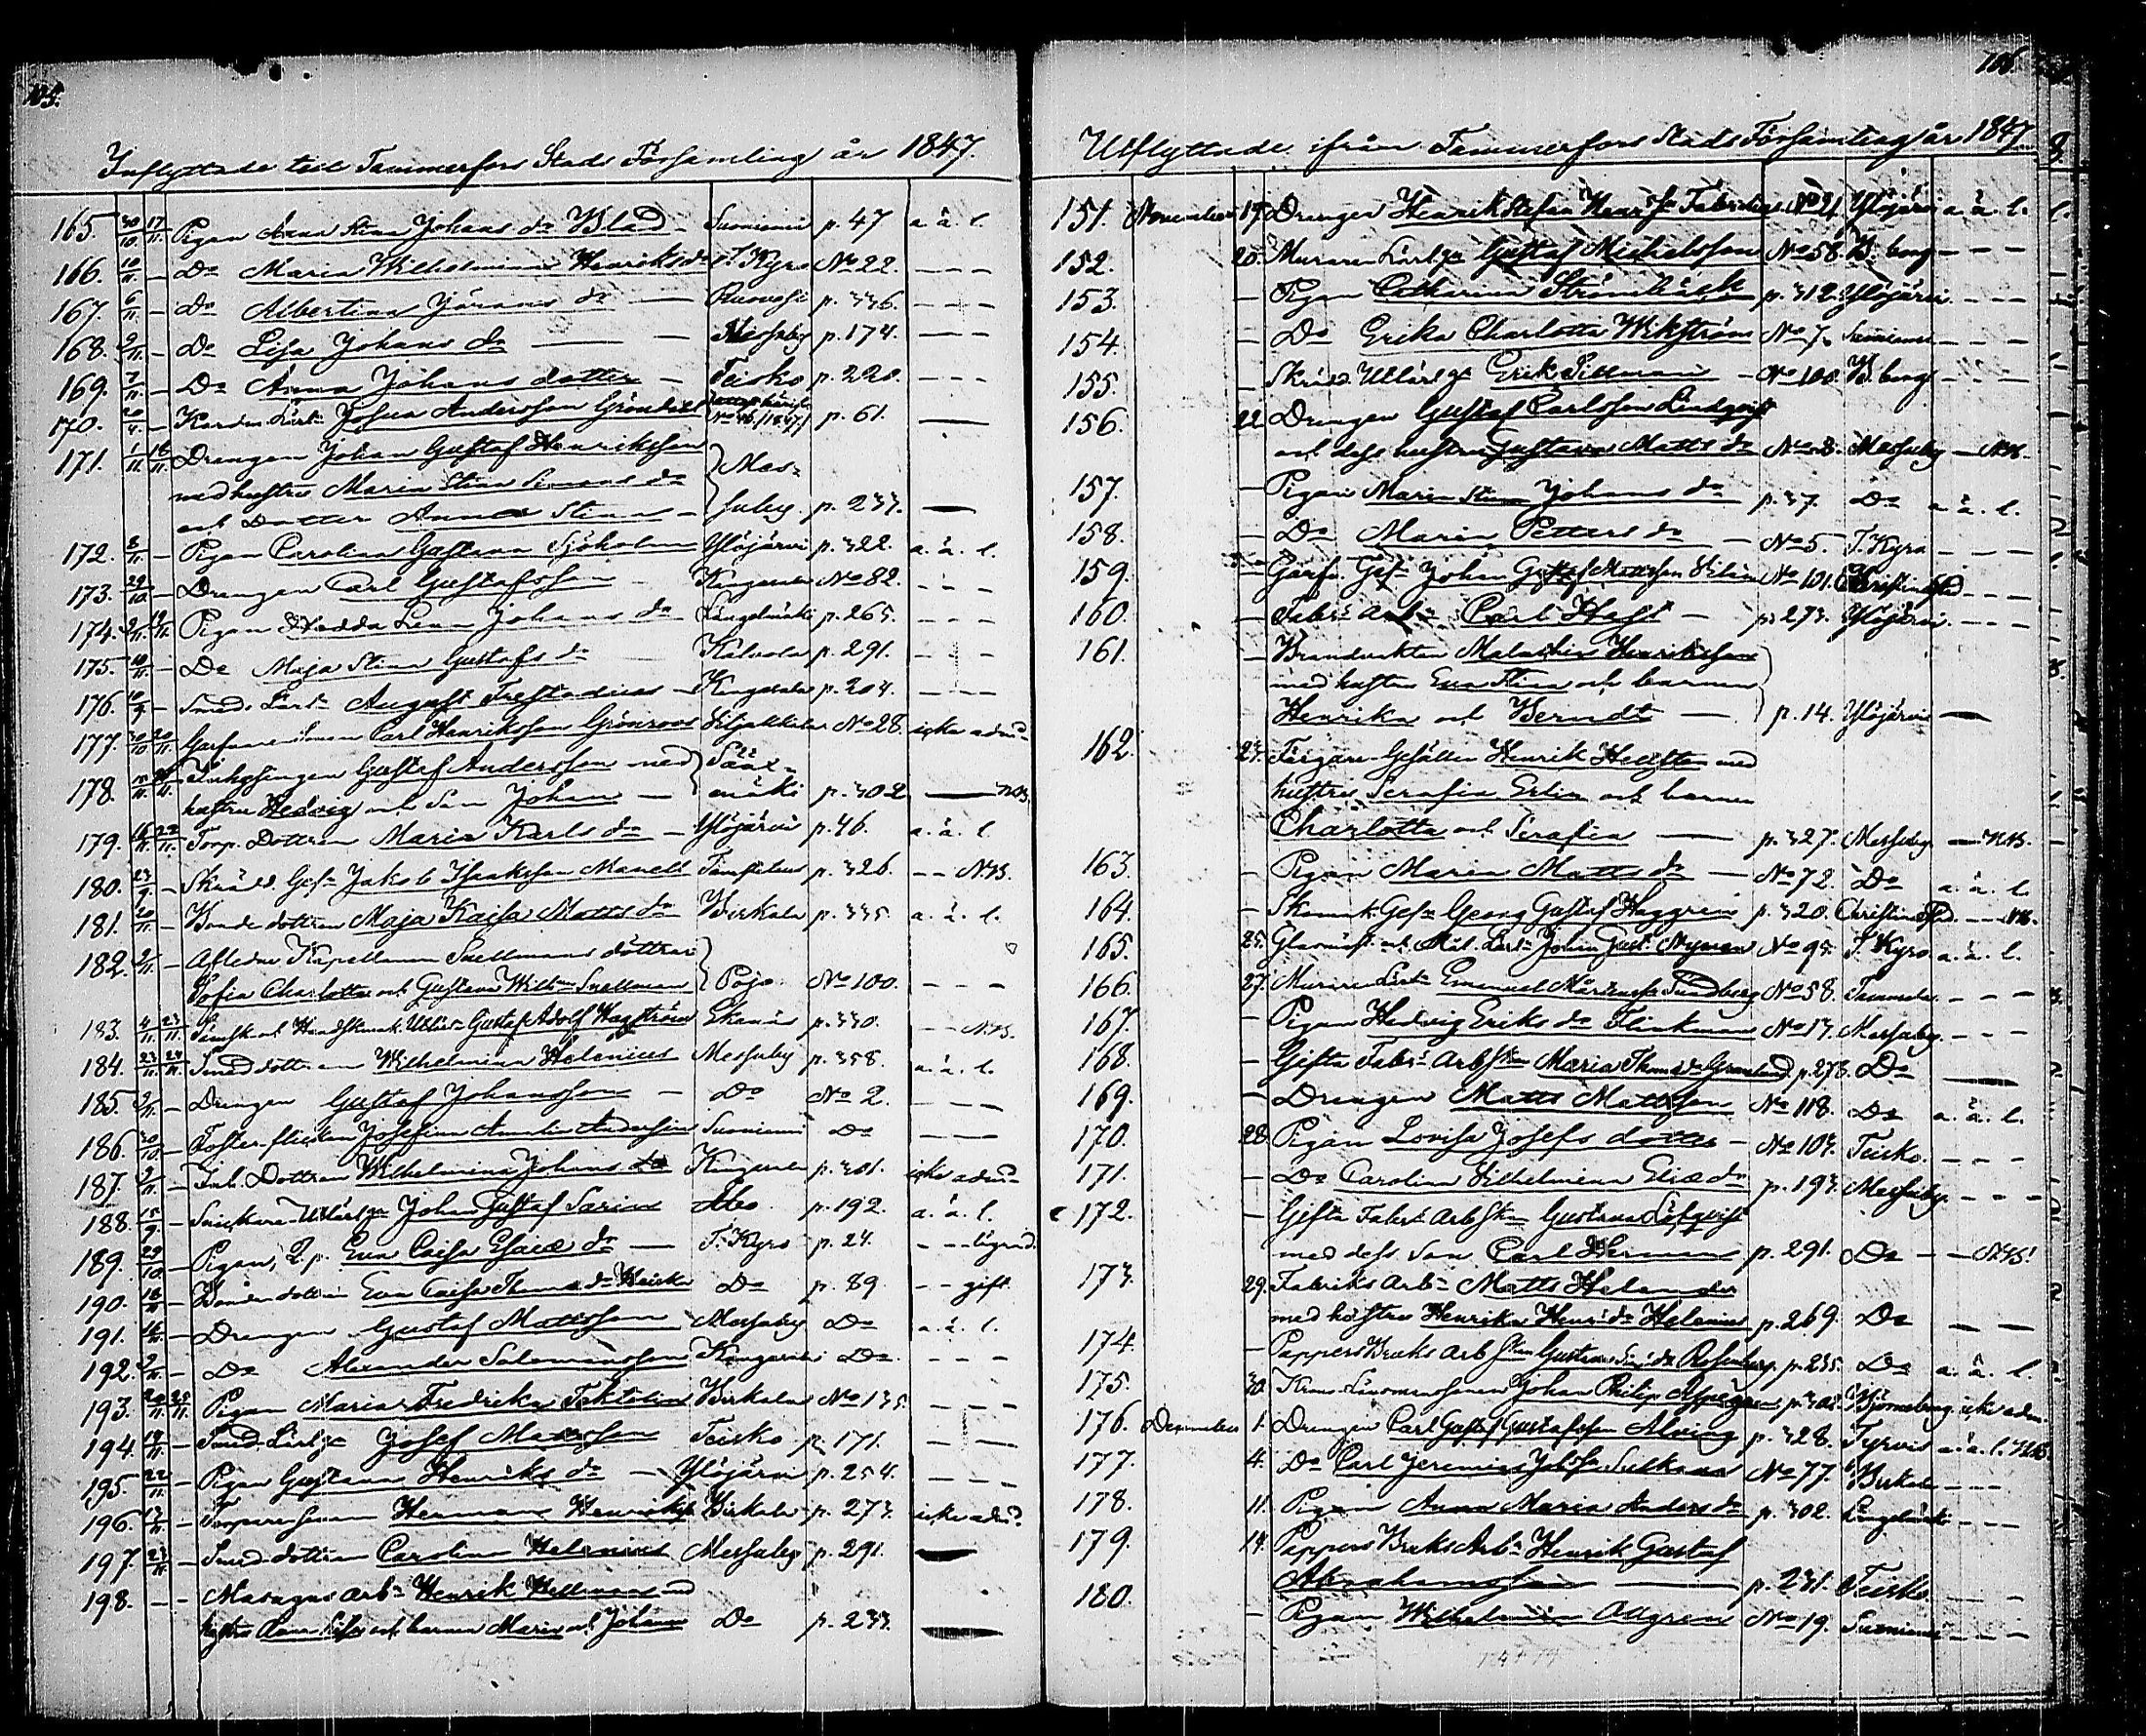 105.
Inflyttade till Tammerfors Stads Församling år 1847.
165. 30/10. 17/11. Pigan Anna Stina Johans dr Blad - Suoniemi p. 47 a. ä. l.
166. 10/11. - Do Maria Wilhelmina Henriksdr T. Kyro No 22. - - -
167. 6/11. - Do Albertina Görans dr - Ruovesi p. 336. - - -
168. 9/11. - Do Lisa Johans dr - - Messuby p. 174. - -
169. 7/11. - Do Anna Johans dotter - Teisko p. 220. - - -
170. 20/4. - Johan Andersson No 46 /1847/ p. 61. -
171. 1/11. 16/11. Drengen Johan Gustaf Henriksson
med hustru Maria Stina Simons dr } Mes-
och Dotter Anna Stina - suby. p. 233. -
172. 8/11. - Pigan Carolina Gustava Sjöholm Ylöjärvi p. 322. a. ä. l.
173. 29/10. - Drengen Carl Gustafsson - Kangasala No 82. - - -
174. 2/11. 19/11. Pigan Hedda Lena Johans dr Längelmäki p. 265. - - -
175. 10/11. - Do Maja Stina Gustafs dr Kalvola p. 291. - - -
176. 10/9. - Smeds Lärl. August Trestadius - Kangasala p. 204. - - -
177. 30/10. 20/11. Carl Henriksson Grönroos No 28. icke adm.
178. 15/11. Inhysingen Gustaf Andersson med } Sääx-
hustru Hedvig och Son Johan - mäki p. 302 - NB.
179. 16/11. 22/11. Torp. Dottren Maria Karls dr - Ylöjärvi p. 46. a. ä. l.
180. 23/9. - Skrädd. Ges. Jakob Isaksson Manell p. 326. - - NB.
181. 20/11. - Bonde dottren Maja Kaisa Matts dr Birkala p. 335. a. ä. l.
182. 2/11. - Afledne Kapellanen Snellmans döttrar
Sofia Charlotta och Gustava Wilhna Snellman } Pojo No 100. - - -
183. 4/11. 23/11. Gustaf Adolf Hagström Ekenäs p. 330. - - NB.
184. 23/11. 24/11. Smeddottren Wilhelmina Helenius Messuby p. 358. a. ä. l.
185. 2/11. - Drengen Gustaf Johansson - Do No 2. - - -
186. 30/10. - Foster flickan Josefina Amalia Andersson Suoniemi Do - - -
187. 2/11. - Inh. Dottren Wilhelmina Johans dr Kangasala p. 301. icke adm.
188. 15/9. - Snickare Utlärlge Johan Gustaf Sarin Åbo p. 192. a. ä. l.
189. 29/10. - Pigan, Q. p. Eva Caisa Esaiæ dr - T. Kyro p. 24. - -
190. 18/11. - Bonden dottren Eva Caisa Thomas dr Do p. 89 - - gift.
191. 16/11. - Drengen Gustaf Mattsson Messuby Do a. ä. l.
192. 9/11. - Do Alexander Salomonsson Kangasala Do. - - -
193. 20/11. 25/11. Pigan Maria Fredrika Birkala No 135. - - -
194. 19/11. - Smed. Lärlge Josef Mattsson Teisko p. 171. - - -
195. 22/11. - Pigan Gustava Henriks dr - Ylöjärvi p. 254. - - -
196. 13/11. - Torparesonen Herman Henriksson Birkala p. 273. icke adm.
197. 23/11. - Smed dottren Carolina Helenius Messuby p. 291. -
198. - - Masugns arbn Henrik Hellman med
hustru och barnen Maria och Johan Do p. 233. -
106.
Utflyttade ifrån Tammerfors Stads Församling år 1847.
151. November 19. Drengen Henrik Stefan Henrsson Fabritius No 21. Ylöjärvi a. ä. l.
152. 20. Murare Lärlge Gustaf Michelsson No 58. B:borg - - -
153. - Pigan Catharina Strömbäck p. 312. Ylöjärvi - - -
154. - Do Erika Charlotta Wikström No 7. Suoniemi - - -
155. - Skrädd. Utlärlge Erik Sillman - No 100. B:borg - - -
156. 22. Drengen Gustaf Carlsson Lindqvist
och dess hustru Gustava Matts dr No 8. Messuby - NB.
157. - Pigan Maria Stina Johans dr p. 37. Do a. ä. l.
158. - Do Maria Petters dr - No 5. T. Kyro - - -
159. - Garfv. Ges. Johan Gustaf Mattsson No 101. Christinestad - - -
160. - Fabrs Arbr Carl Haft - p. 273. Ylöjärvi - - -
161. - Brandvakten Malakias Henriksson
med hustru Eva Stina och barnen
Henrika och Berndt - } p. 14. Ylöjärvi -
162. 24. Färgare Gesällen Henrik Hedsten med
hustru Serafia Erlin och barnen
Charlotta och Serafia - p. 327. Messuby - NB.
163. - Pigan Maria Matts dr - No 72. Do a. ä. l.
164. - Skomk. Ges. Georg Gustaf Haggren p. 320. Christinestad. - - NB.
165. 25. Glasmäst. och Mål. Lärl. Johan Gust. Nyman No 95. T. Kyro a. ä. l.
166. 27. Murare Lärl. Emanuel Mårtensson Sundberg No 58. Tammela - - -
167. - Pigan Hedvig Eriks dr Flinkman No 13. Messuby - - -
168. - Gifta Fabrs Arbskan Maria Thomas dr Grönlund p. 278. Do -
169. - Drengen Matts Mattsson No 118. Do a. ä. l.
170. 28. Pigan Lovisa Josefs dotter - No 107. Teisko. - - -
171. - Do Carolina Wilhelmina Eliæ dr p. 193. Messuby - - -
172. - Gifta Fabrs Arbska Gustava Löfqvist
med dess Son Carl Herman p. 291. Do - - NB!
173. 29. Fabriks Arbr Matts Helander
med hustru Henrika Henrs dr Helenius p. 269. Do - -
174. - Pappers Bruks Arbskan Gustava Rosenberg p. 235. Do a. ä. l.
175. 30. Krono Länsmanssonen Johan Philip p. 308. Björneborg icke adm.
176. December 1. Drengen Carl Gustaf Gustafsson Alving p. 328. Tyrvis a. ä. l. NB.
177. 4. Do Carl Jeremias No 77. Birkala - - -
178. 11. Pigan Anna Maria Anders dr p. 302. Längelmäki - - -
179. 14. Pappers Bruks Arbr Henrik Gustaf
Abrahamsson - p. 231. Teisko. - -
180. - Pigan Wilhelmina Allgren No 19. Suoniemi - - -